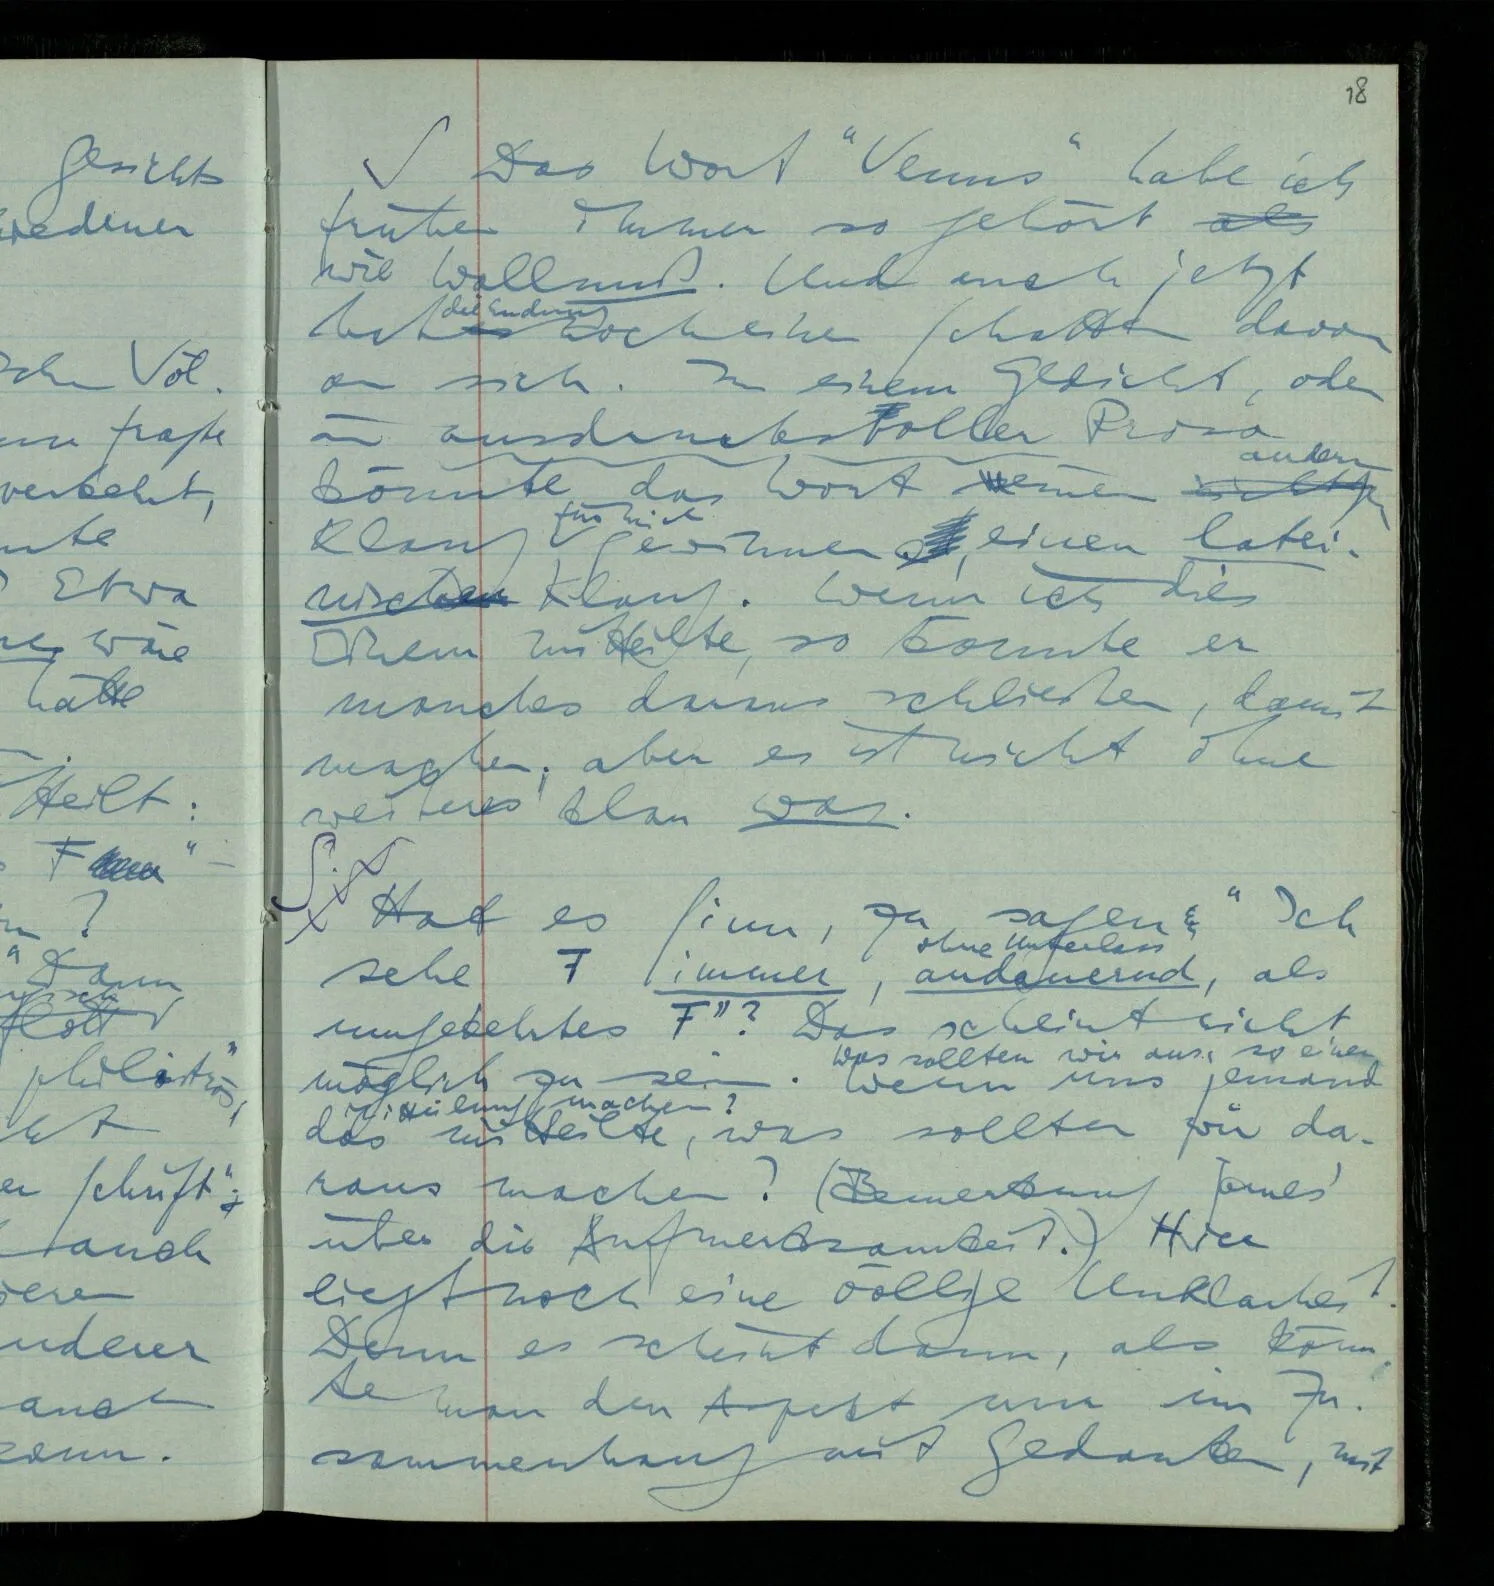 Gesichts
iedener
Vol.
fragte
verkehrt,
nte
Etwa
wäre
hätte
teilt:
F" –
?
"Dann
philiströs",
er Schrift";
auch
nderer
auch
kann.
18
∫ Das Wort "Venus" habe ich
früher immer so gehört als
wie Wallnuß. Und auch jetzt
hat es die Endung noch einen Schatten davon
an sich. In einem Gedicht, oder
in ausdrucksvoller Prosa
könnte das Wort einen andern
Klang für mich gewinnen, einen latei-
nischen Klang. Wenn ich dies
Einem mitteilte, so könnte er
manches daraus schließen, damit
machen; aber es ist nicht ohne
weiteres klar was.
∫ Hat es Sinn, zu sagen: "Ich
sehe F immer, ohne Unterlass andauernd, als
umgekehrtes F"? Das scheint nicht
möglich zu sein. Was sollten wir aus so einer Wenn uns jemand
Mitteilung machen? das mitteilte, was sollten wir da-
raus machen? (Bemerkung James'
über die Aufmerksamkeit.) Hier
liegt noch eine völlige Unklarheit.
Denn es scheint dann, als könn-
te man den Aspekt nur im Zu-
sammenhang mit Gedanken, mit